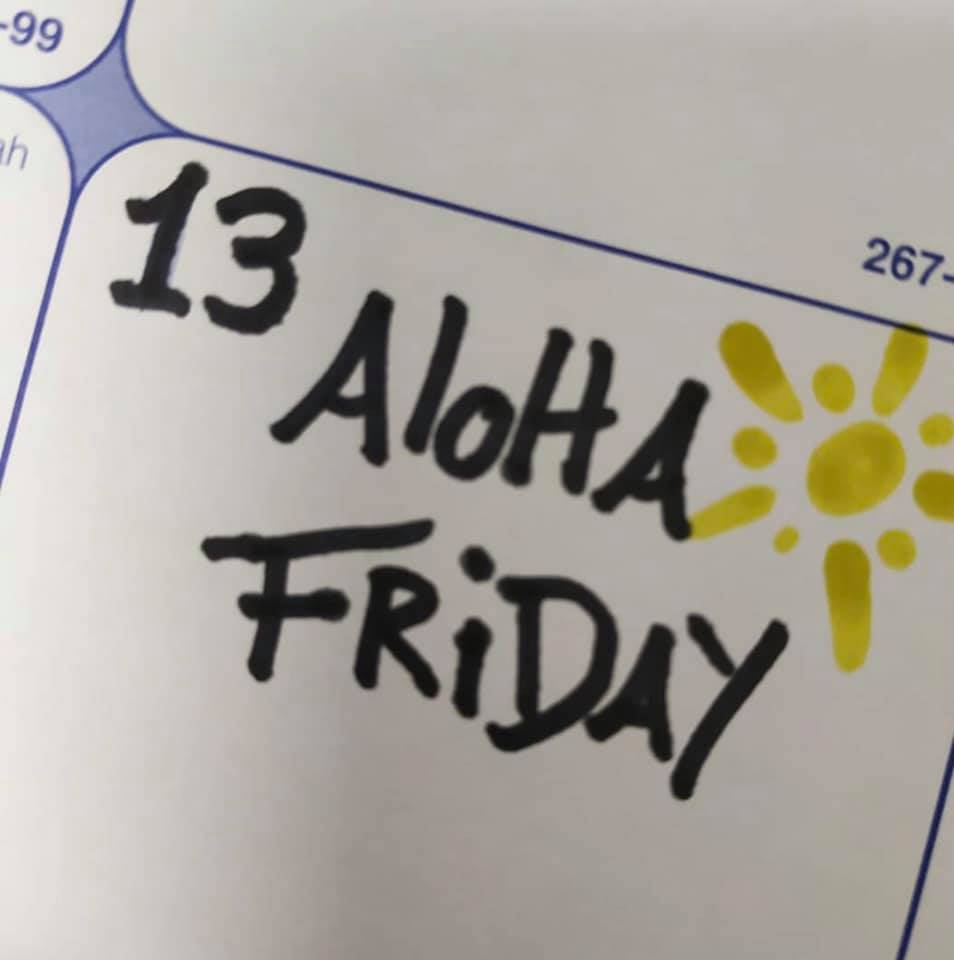 -99
ah
267-
13
AloHA
FRiDAY